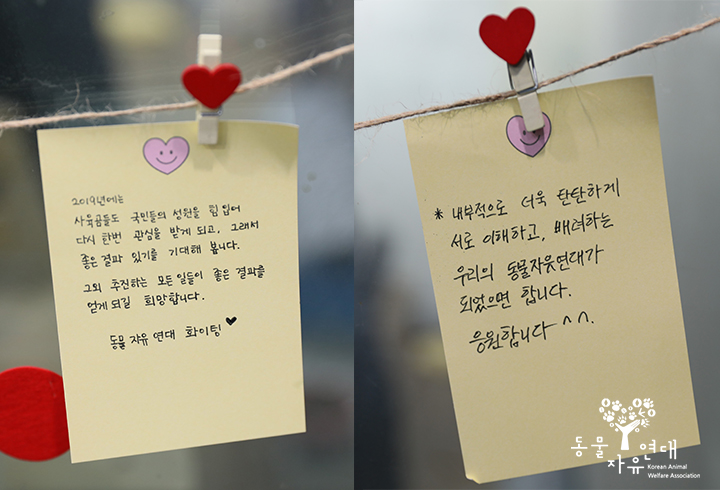 2019년에는
사육곰들도 국민들의 성원을 힘입어
다시 한번 관심을 받게 되고, 그래서
좋은 결과 있기를 기대해 봅니다.
그외 추진하는 모든 일들이 좋은 결과를
얻게 되길 희망합니다.
동물 자유 연대 화이팅 ♥
* 내부적으로 더욱 탄탄하게
서로 이해하고, 배려하는
우리의 동물자유연대가
되었으면 합니다.
응원합니다 ^^.
동물
자유
연대
Korean Animal
Welfare Association